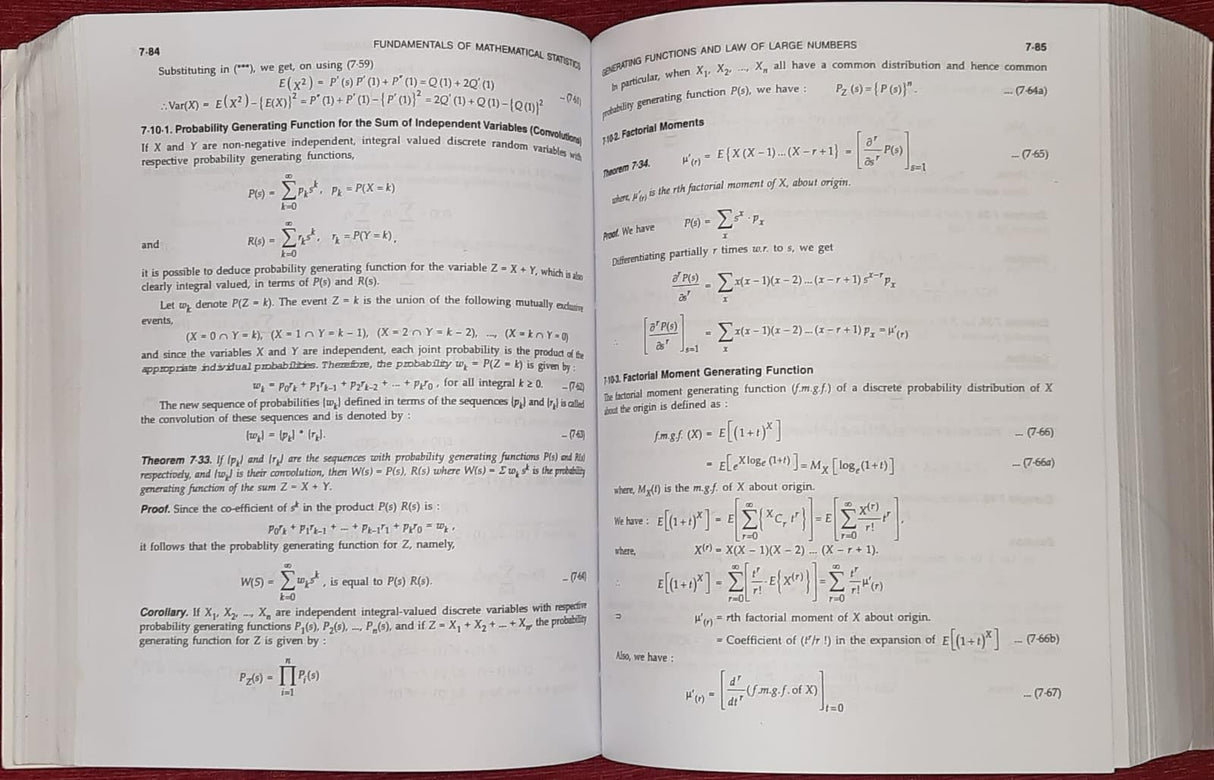 7·84
FUNDAMENTALS OF MATHEMATICAL STATISTICS
Substituting in (***), we get, on using (7·59)
E(X²) = P′(s) P′(1) + P″(1) = Q(1) + 2Q′(1)
∴ Var(X) = E(X²) – {E(X)}² = P″(1) + P′(1) – {P′(1)}² = 2Q′(1) + Q(1) – {Q(1)}²
7·10·1. Probability Generating Function for the Sum of Independent Variables (Convolutions)
If X and Y are non-negative independent, integral valued discrete random variables with
respective probability generating functions,
P(s) = ∞ Σ k=0 pₖsᵏ, pₖ = P(X = k)
and R(s) = ∞ Σ k=0 rₖsᵏ, rₖ = P(Y = k),
it is possible to deduce probability generating function for the variable Z = X + Y, which is also
clearly integral valued, in terms of P(s) and R(s).
Let wₖ denote P(Z = k). The event Z = k is the union of the following mutually exclusive
events,
(X = 0 ∩ Y = k), (X = 1 ∩ Y = k – 1), (X = 2 ∩ Y = k – 2), ..., (X = k ∩ Y = 0)
and since the variables X and Y are independent, each joint probability is the product of the
appropriate individual probabilities. Therefore, the probability wₖ = P(Z = k) is given by :
wₖ = p₀rₖ + p₁rₖ₋₁ + p₂rₖ₋₂ + ... + pₖr₀ , for all integral k ≥ 0. ...(7·62)
The new sequence of probabilities {wₖ} defined in terms of the sequences {pₖ} and {rₖ} is called
the convolution of these sequences and is denoted by :
{wₖ} = {pₖ} * {rₖ}. ...(7·63)
Theorem 7·33. If {pₖ} and {rₖ} are the sequences with probability generating functions P(s) and R(s)
respectively, and {wₖ} is their convolution, then W(s) = P(s). R(s) where W(s) = Σ wₖ sᵏ is the probability
generating function of the sum Z = X + Y.
Proof. Since the co-efficient of sᵏ in the product P(s) R(s) is :
p₀rₖ + p₁rₖ₋₁ + ... + pₖ₋₁r₁ + pₖr₀ = wₖ ,
it follows that the probablity generating function for Z, namely,
W(S) = ∞ Σ k=0 wₖsᵏ , is equal to P(s) R(s). ...(7·64)
Corollary. If X₁, X₂, ..., Xₙ are independent integral-valued discrete variables with respective
probability generating functions P₁(s), P₂(s), ..., Pₙ(s), and if Z = X₁ + X₂ + ... + Xₙ, the probability
generating function for Z is given by :
P_Z(s) = n ∏ i=1 Pᵢ(s)
GENERATING FUNCTIONS AND LAW OF LARGE NUMBERS
7·85
In particular, when X₁, X₂, ..., Xₙ all have a common distribution and hence common
probability generating function P(s), we have : P_Z (s) = {P (s)}ⁿ. ... (7·64a)
7·10·2. Factorial Moments
Theorem 7·34. μ′₍ᵣ₎ = E{X (X – 1) ... (X – r + 1} = [∂ʳ/∂sʳ P(s)]ₛ₌₁ ... (7·65)
where, μ′₍ᵣ₎ is the rth factorial moment of X, about origin.
Proof. We have P(s) = Σ x sˣ · pₓ
Differentiating partially r times w.r. to s, we get
∂ʳP(s)/∂sʳ = Σ x x(x – 1)(x – 2) ... (x – r + 1) sˣ⁻ʳ pₓ
∴ [∂ʳP(s)/∂sʳ]ₛ₌₁ = Σ x x(x – 1)(x – 2) ... (x – r + 1) pₓ = μ′₍ᵣ₎
7·10·3. Factorial Moment Generating Function
The factorial moment generating function (f.m.g.f.) of a discrete probability distribution of X
about the origin is defined as :
f.m.g.f. (X) = E[(1 + t)ˣ] ... (7·66)
= E[e^(X logₑ (1+t))] = M_X [logₑ(1 + t)] ... (7·66a)
where, M_X(t) is the m.g.f. of X about origin.
We have : E[(1 + t)ˣ] = E[∞ Σ r=0 {ˣCᵣ tʳ}] = E[∞ Σ r=0 X⁽ʳ⁾/r! tʳ],
where, X⁽ʳ⁾ = X(X – 1)(X – 2) ... (X – r + 1).
∴ E[(1 + t)ˣ] = ∞ Σ r=0 [tʳ/r! · E{X⁽ʳ⁾}] = ∞ Σ r=0 tʳ/r! μ′₍ᵣ₎
⊃ μ′₍ᵣ₎ = rth factorial moment of X about origin.
= Coefficient of (tʳ/r !) in the expansion of E[(1 + t)ˣ] ... (7·66b)
Also, we have :
μ′₍ᵣ₎ = [dʳ/dtʳ (f.m.g.f. of X)]ₜ₌₀ ... (7·67)